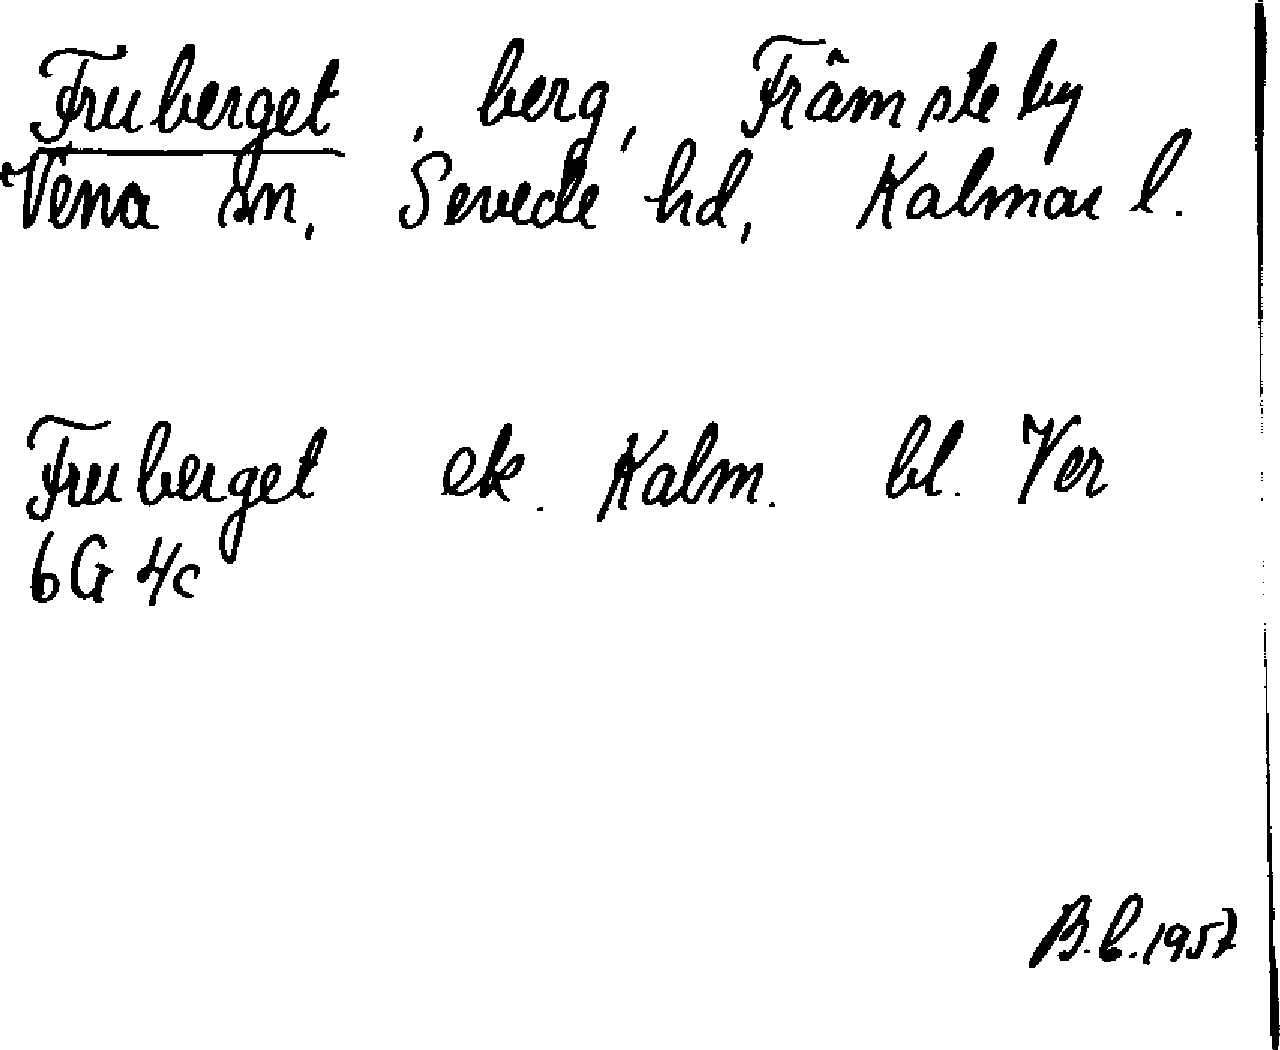 Fruberget, berg, Främsteby
Vena sn, Sevede hd, Kalmar l.
Fruberget ek. Kalm. bl. Ver
6G 4c
B.b. 1957